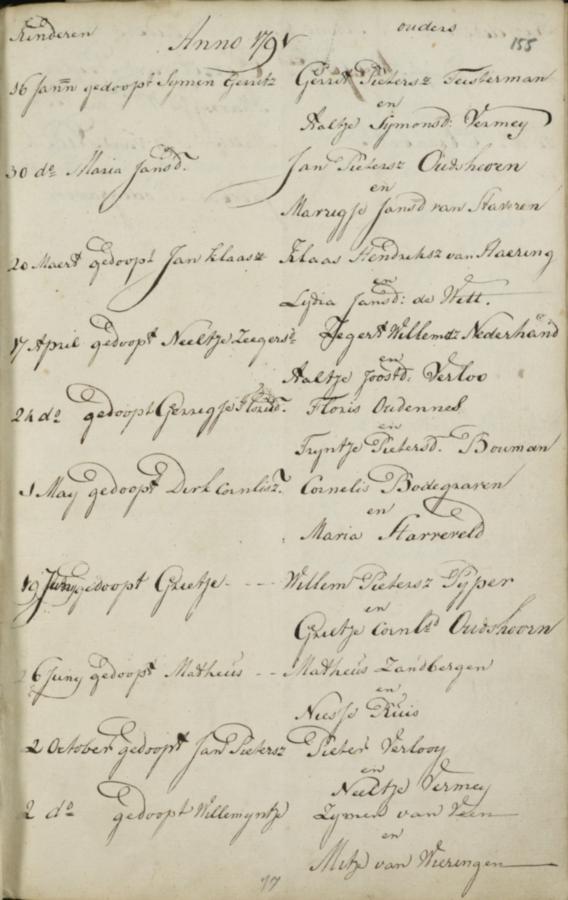 Kinderen ouders
Anno 1791 155
16 Jann gedoopt Symen Gerritz Gerrit Pietersz Teesterman
en
Aaltje Symonsd: Vermey
30 do Maria Jansd. Jan Pietersz Oudshoorn
en
Marregje Jansd van Staveren
20 Maert gedoopt Jan Klaasz Klaas Hendriksz van Haering
en
Lydia Jansd: de Wett.
17 April gedoopt Neeltje Zeegersd Zegert Willemsz Nederhand
en
Aaltje Joostd: Verloo
24 do gedoopt Gerregje Florisd. Floris Oudennes
en
Tryntje Pietersd. Bouman
1 May gedoopt Dirk Cornlisz. Cornelis Bodegraven
en
Maria Starreveld
19 Juny gedoopt Grietje - - - Willem Pietersz Pyper
en
Grietje Cornlsd Oudshoorn
26 Juny gedoopt Matheus - - Matheus Zandbergen
en
Niesje Kuis
2 October gedoopt Jan Pietersz Pieter Verlooy
en
Neeltje Vermey
2 do gedoopt Willemyntje Zymen van Veen
en
Mitje van Wieringen
17